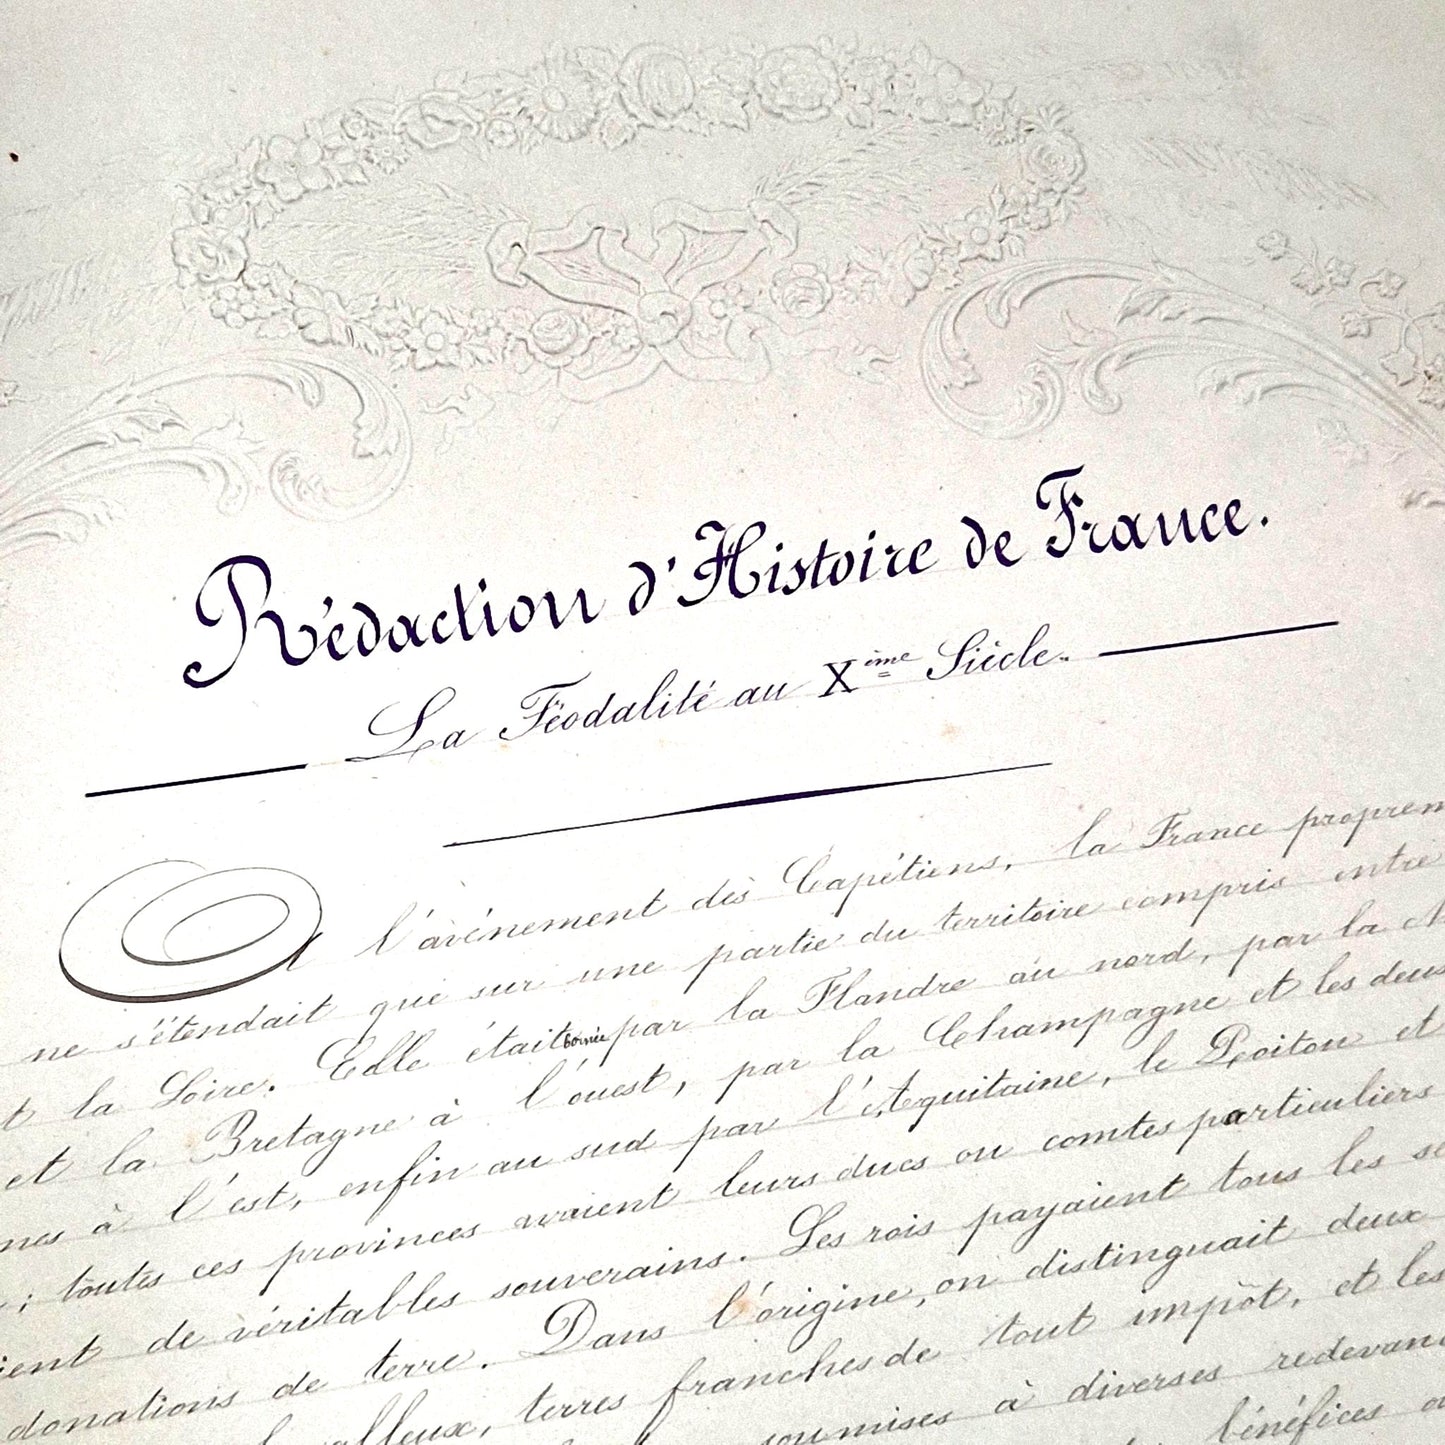 Rédaction d'Histoire de France.
La Féodalité au Xème Siècle.
A l'avènement des Capétiens, la France proprem
ne s'étendait que sur une partie du territoire compris entre
t la Loire. Elle était bornée par la Flandre au nord, par la N
et la Bretagne à l'ouest, par la Champagne et les deux
nes à l'est, enfin au sud par l'Aquitaine, le Poitou et
; toutes ces provinces avaient leurs ducs ou comtes particuliers
ient de véritables souverains. Les rois payaient tous les se
donations de terre. Dans l'origine, on distinguait deux
alleux, terres franches de tout impôt, et les
soumises à diverses redevan
bénéfices